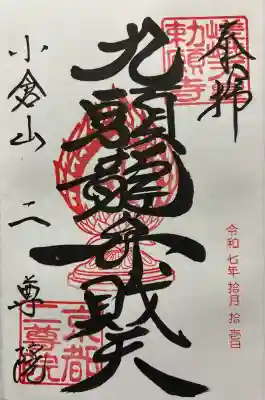 奉拝
嵯峨
勅願寺
九頭龍弁財天
令和七年拾月拾壱日
小倉山 二尊院
京都
二尊院